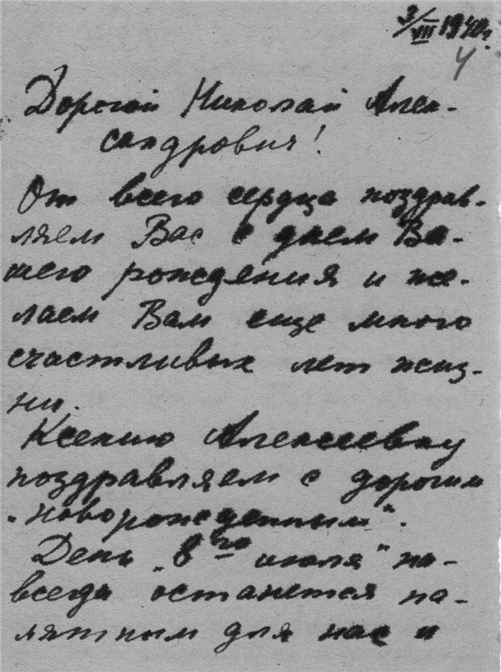 3/VII 1940г.
4
Дорогой Николай Алек-
сандрович!
От всего сердца поздрав-
ляем Вас с днем Ва-
шего рождения и же-
лаем Вам еще много
счастливых лет жиз-
ни.
Ксению Алексеевну
поздравляем с дорогим
„новорожденным".
День „8го июля" на-
всегда останется па-
мятным для нас и